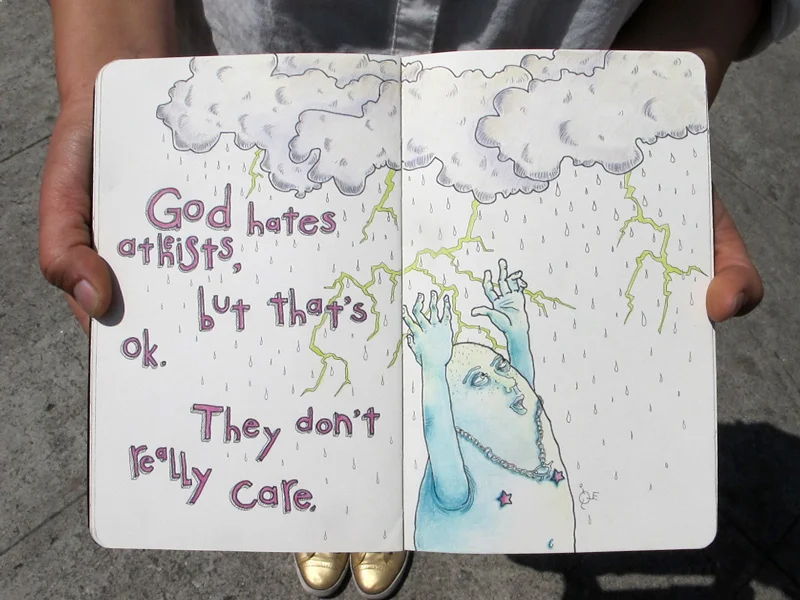 God hates
atheists,
but that's
ok.
They don't
really care.